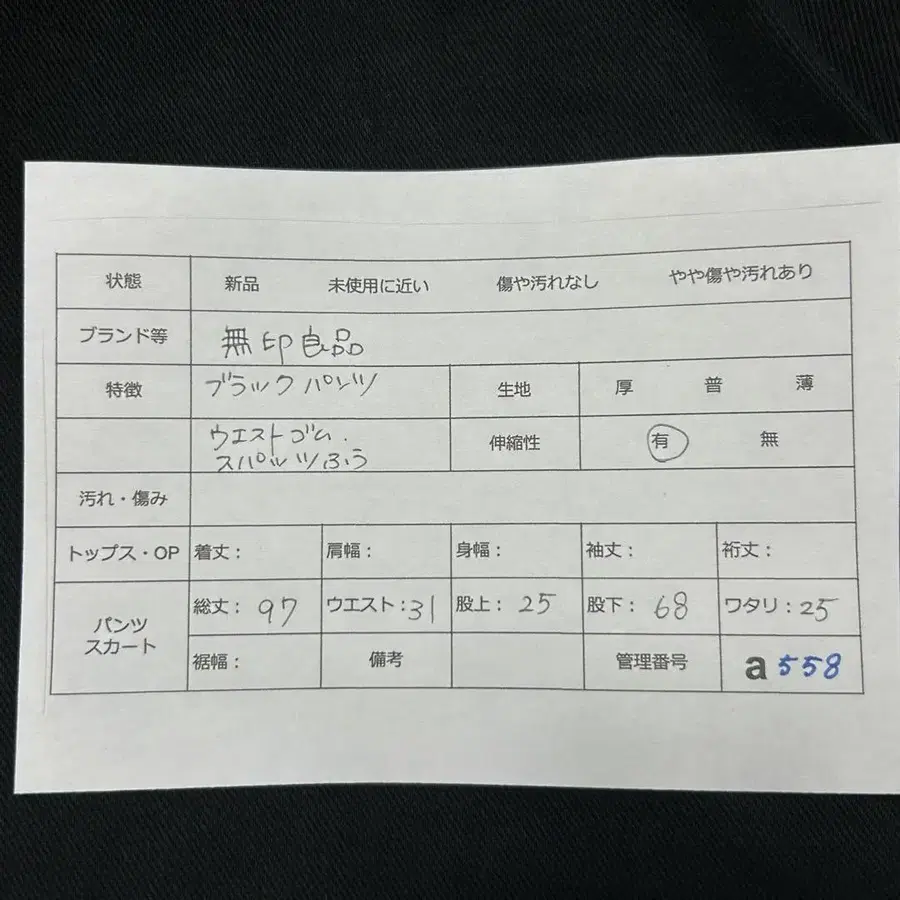 状態 新品 未使用に近い 傷や汚れなし やや傷や汚れあり
ブランド等 無印良品
特徴 ブラックパンツ 生地 厚 普 薄
ウエストゴム. 伸縮性 有 無
スパッツふう
汚れ・傷み
トップス・OP 着丈： 肩幅： 身幅： 袖丈： 裄丈：
パンツ スカート 総丈：97 ウエスト：31 股上：25 股下：68 ワタリ：25
裾幅： 備考 管理番号 a558